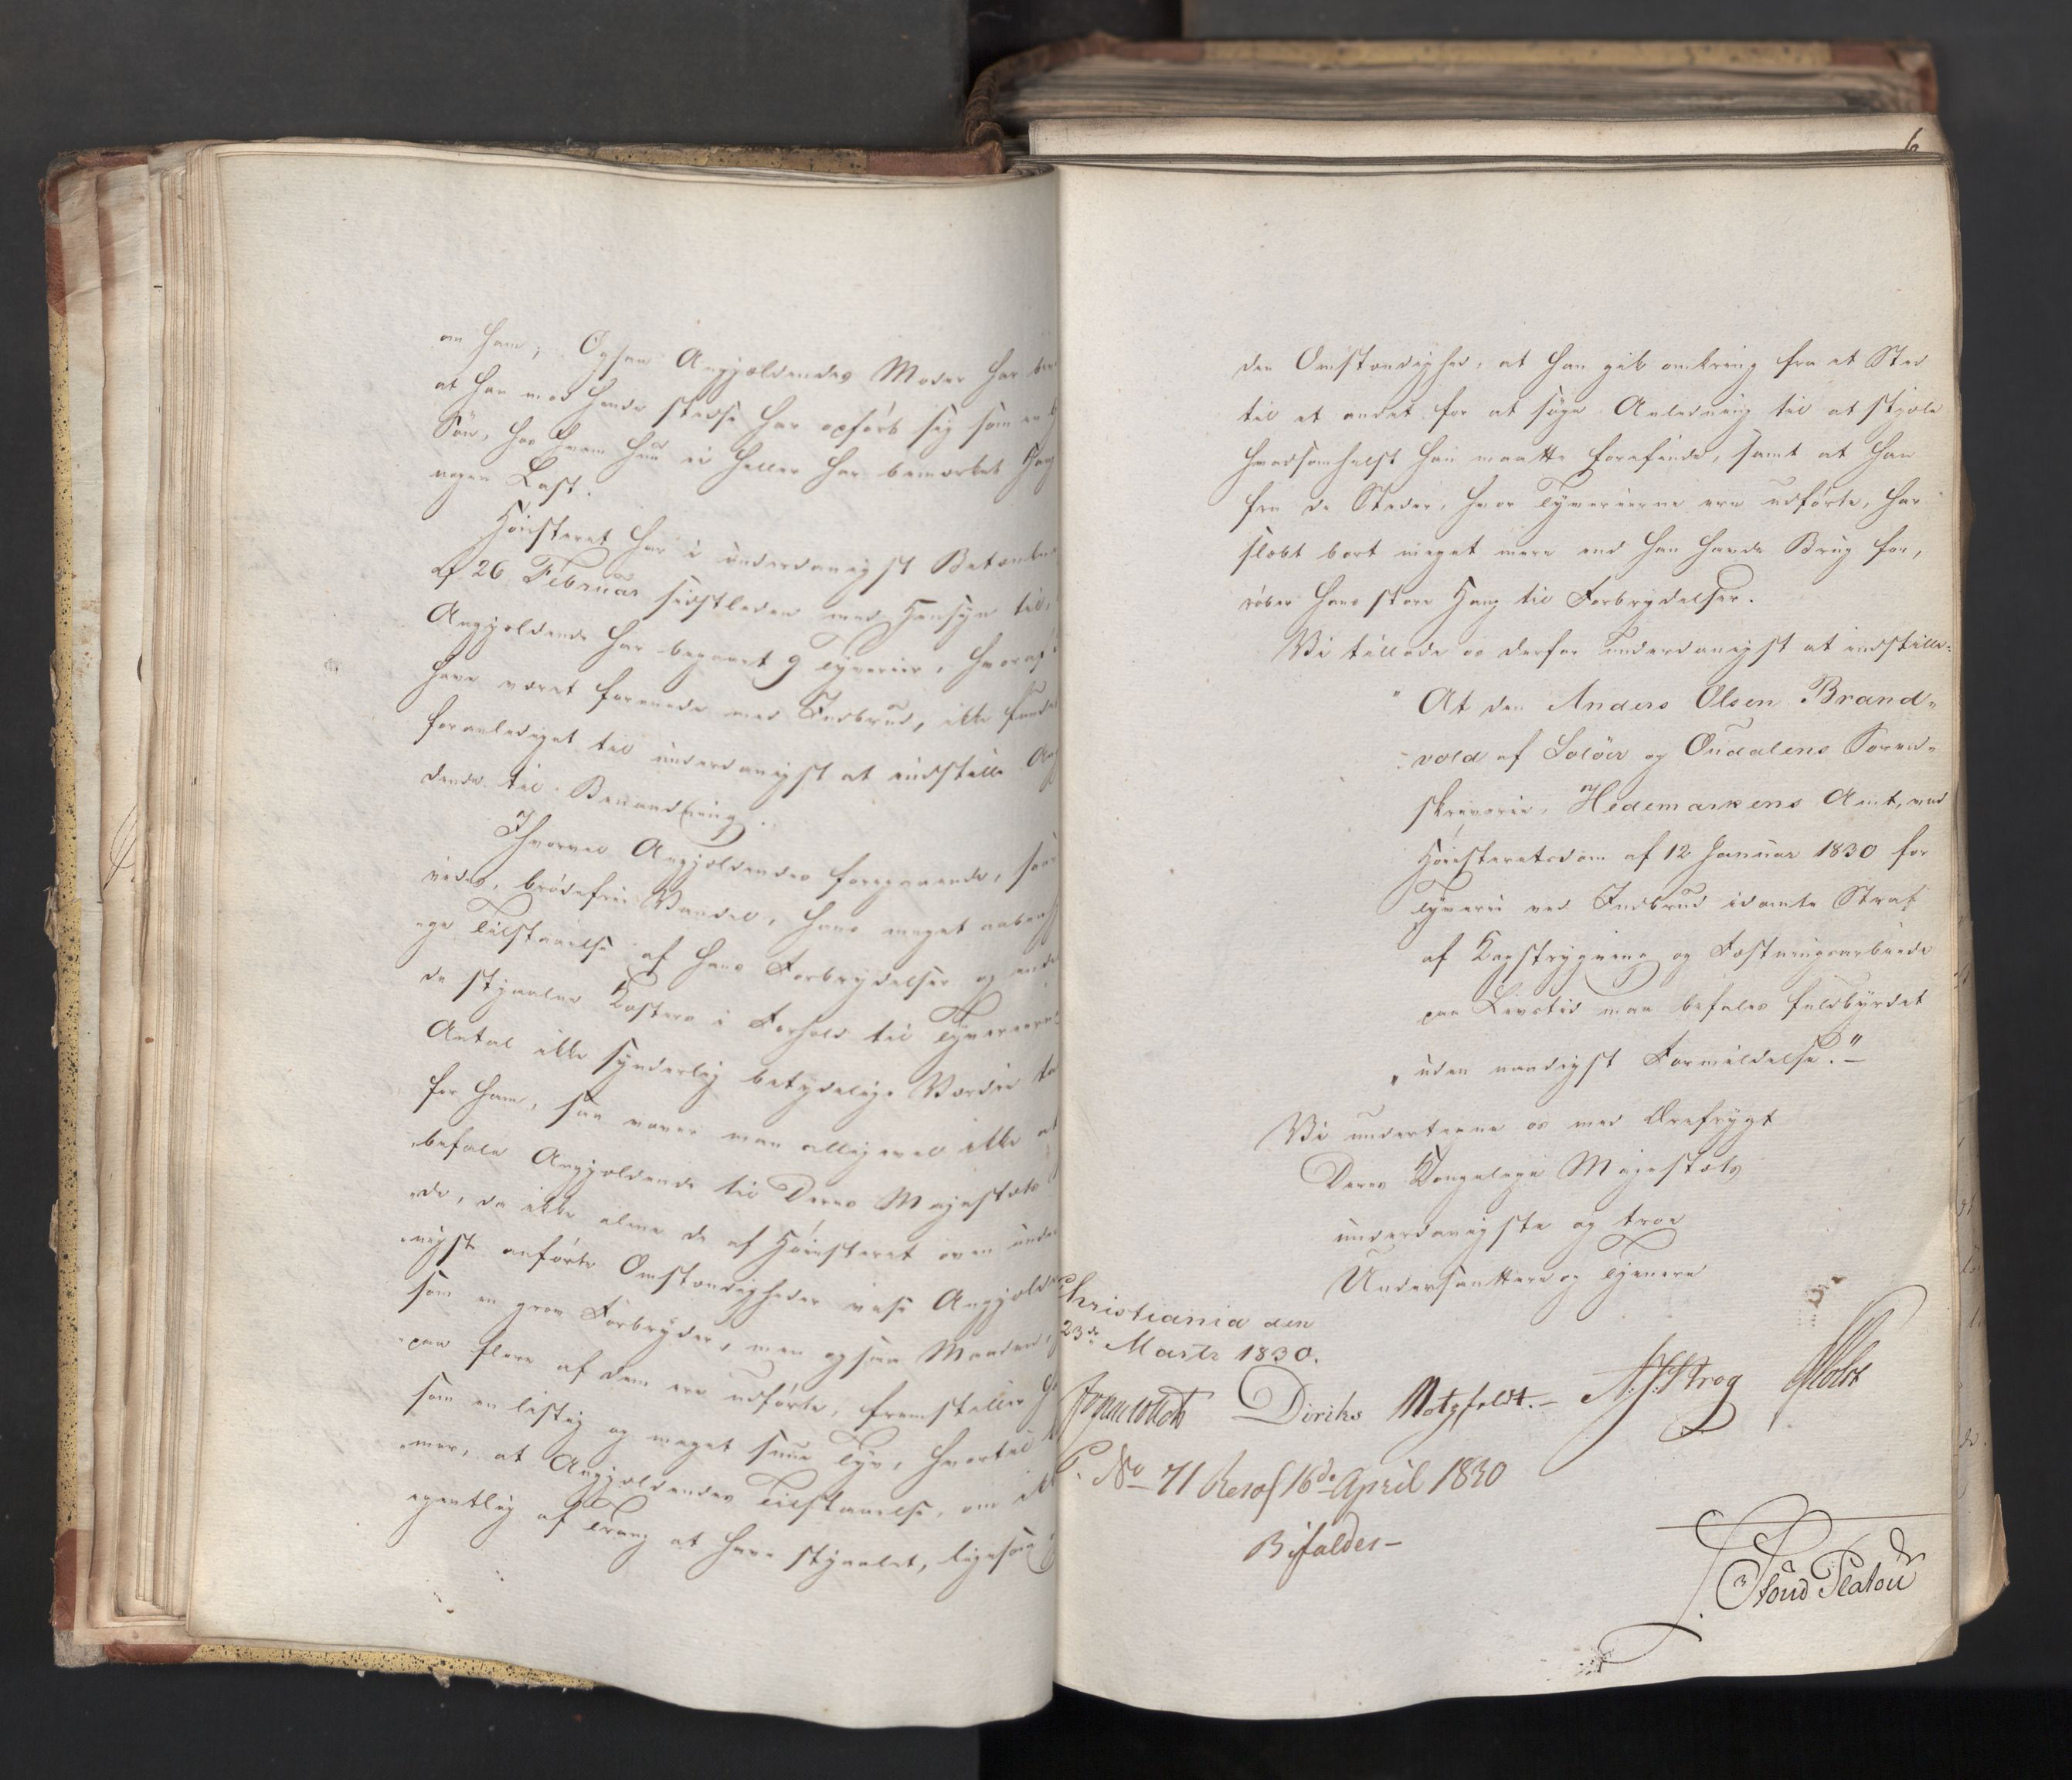 om ham; Ogsaa Angjældendes Moder har
at han mod hende stedse har opført sig som en
Søn, hos hvem hun ei heller har bemærket Hang
nogen Last.
Høiesteret har i underdanigst Betænkn
af 26 Februar sidstleden med Hensyn til,
Angjældende har begaaet 9 Tyverier, hvoraf
have været forenede med Indbrud, ikke funde
foranlediget til underdanigst at indstille An
dende til Benaadning.
Ihvorvel Angjældendes foregaaende, saa
vides, brødefrie Vandel, hans meget aaben
ge Tilstaaelse af hans Forbrydelser og ende
de stjaalne Kosters i Forhold til Tyveriernes
Antal ikke synderlig betydelige Værdie ta
for ham, saa vover man alligevel ikke at
befale Angjældende til Deres Majestæts
de, da ikke alene de af Høiesteret oven under
nigst anførte Omstændigheder vise Angjæld
som en grov Forbryder, men ogsaa Maaden,
paa flere af dem ere udførte, fremstiller ha
som en listig og meget snue Tyv, hvortil
mer, at Angjældendes Tilstaaelse, om ikke
egentlig af Trang at have stjaalet, ligesom
6
den Omstændighed, at han gik omkring fra et Sted
til et andet for at søge Anledning til at stjæle
hvadsomhelst han maatte forefinde, samt at han
fra de Steder, hvor Tyverierne ere udførte, har
slæbt bort meget mere end han havde Brug for,
røber hans store Hang til Forbrydelser.
Vi tillade os derfor underdanigst at indstille:
" At den Anders Olsen Brand-
vold af Soløer og Oudalens Soren-
skriverie, Hedemarkens Amt, ved
Høiesteretsdom af 12 Januar 1830 for
Tyverie ved Indbrud idømte Straf
af Kagstrygning og Fæstningsarbeide
paa Livstid maa befales fuldbyrdet
uden naadigst Formildelse."
Vi undertegne os med Ærefrygt
Deres Kongelige Majestæts
underdanigste og troe
Undersaatter og Tjenere
Christiania den
23de Marts 1830.
Diriks Motzfeldt. Krog Holst
P. No 71 Resol 16de April 1830
Bifaldes
Stoud Platou